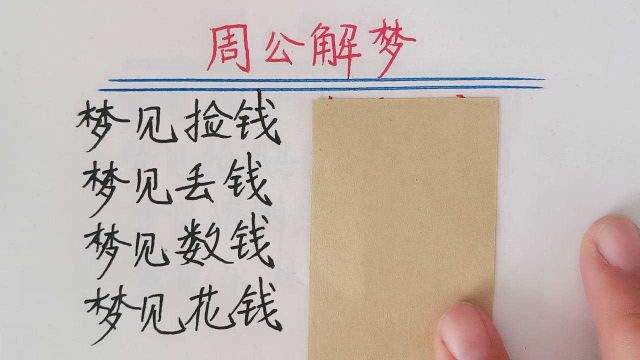 周公解梦
梦见捡钱
梦见丢钱
梦见数钱
梦见花钱